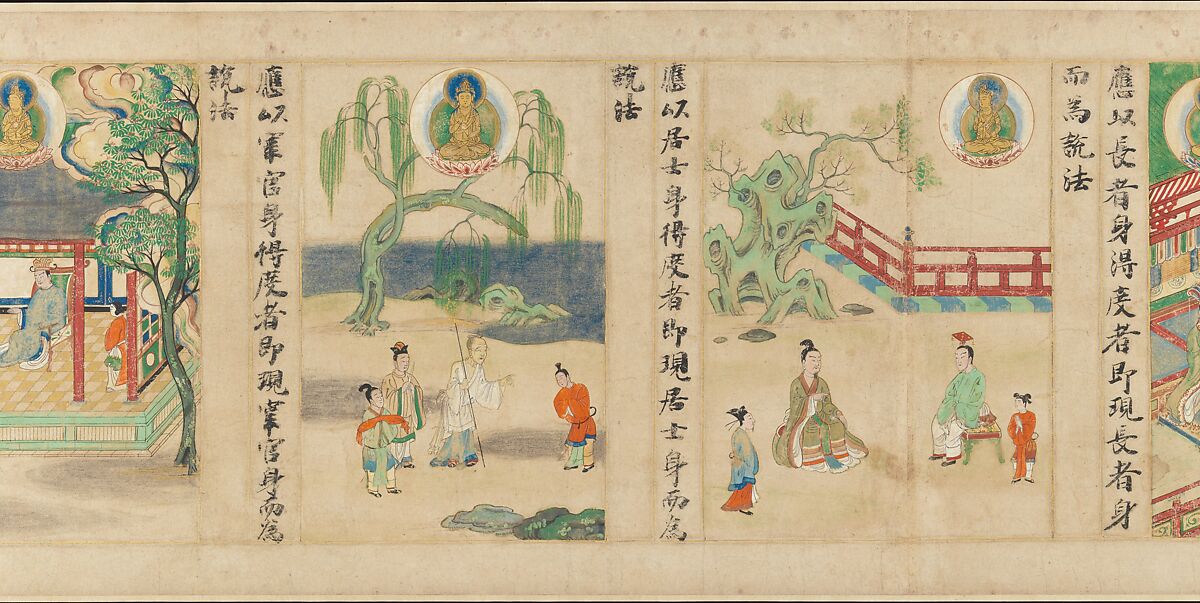 應以長者身得度者即現長者身
而為説法
應以居士身得度者即現居士身而為
説法
應以宰官身得度者即現宰官身而為
説法